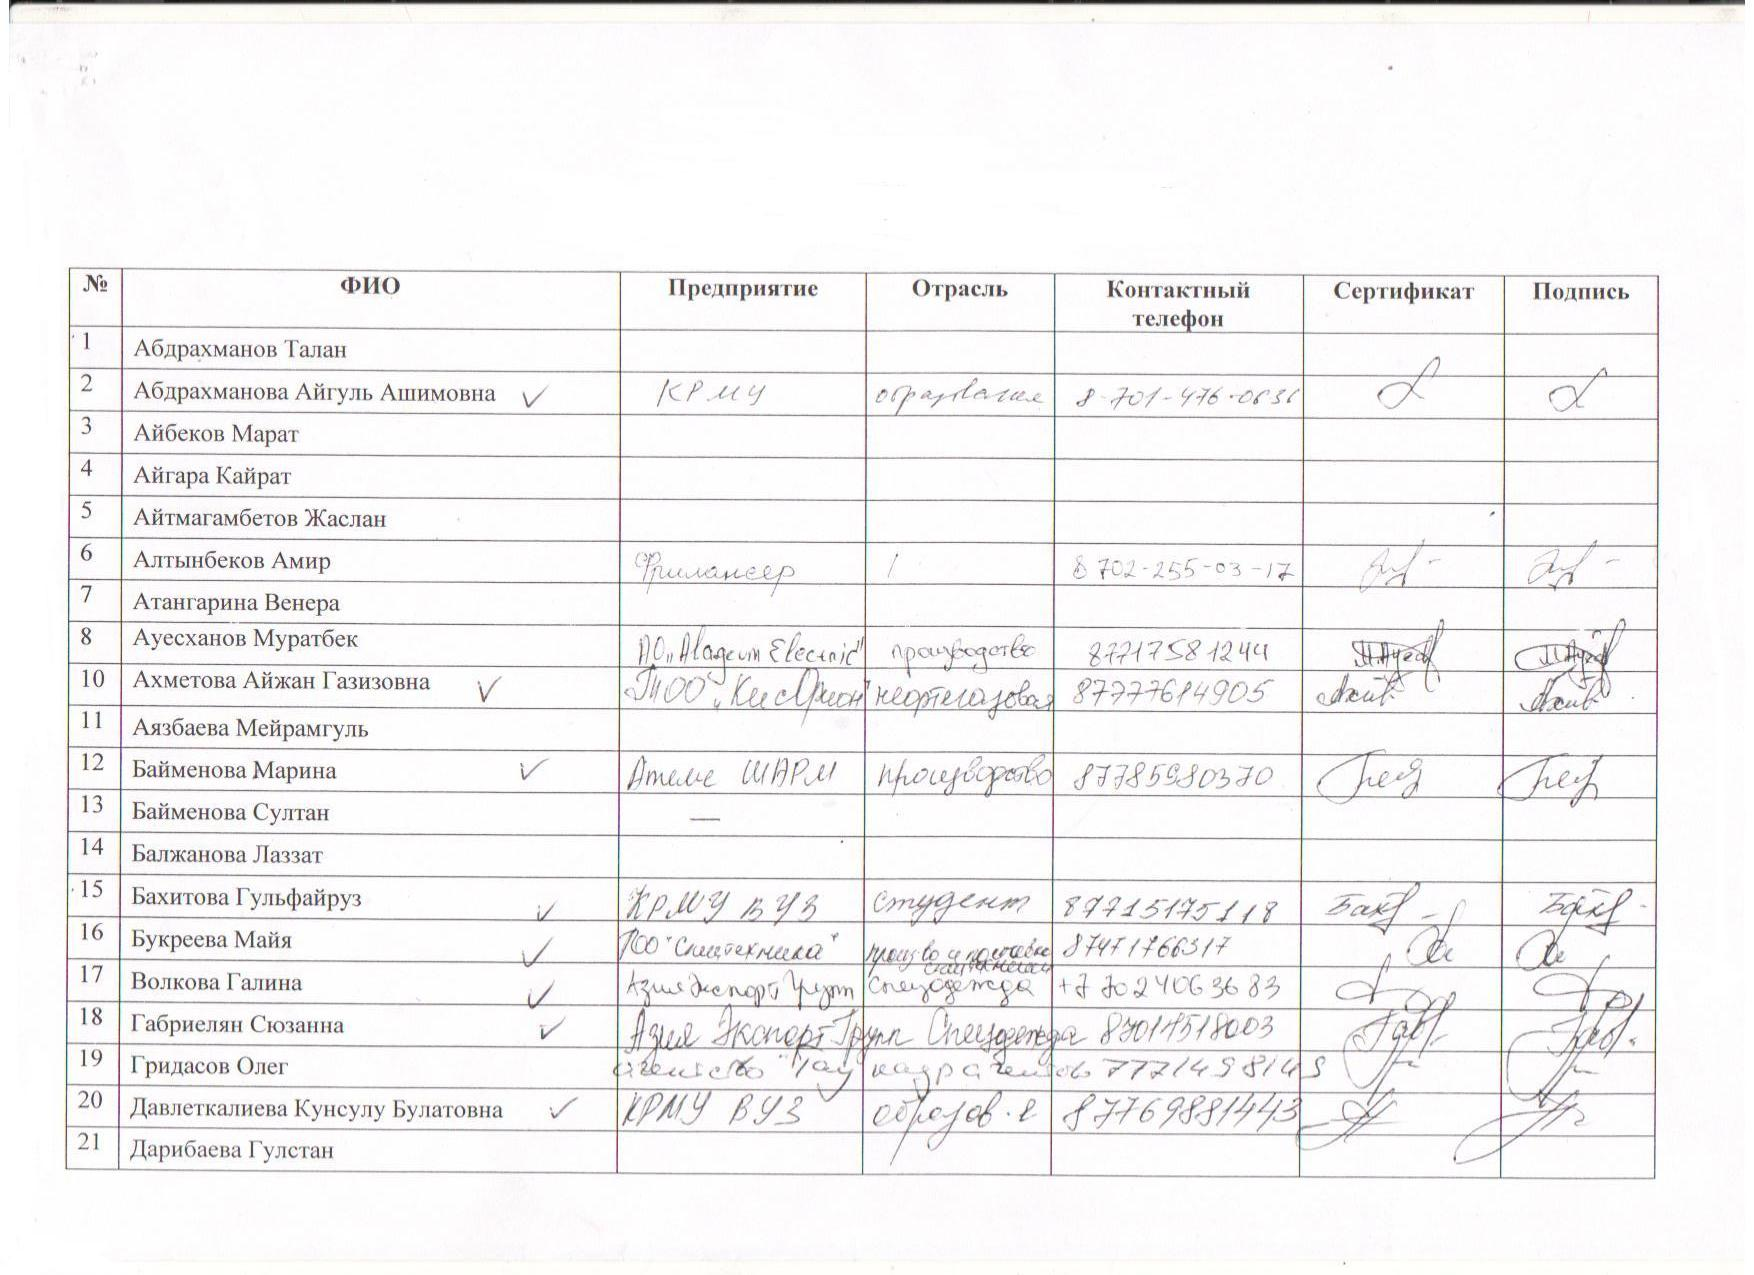 № ФИО Предприятие Отрасль Контактный телефон Сертификат Подпись
1 Абдрахманов Талан
2 Абдрахманова Айгуль Ашимовна КРМУ образование 8-701-476-0636
3 Айбеков Марат
4 Айгара Кайрат
5 Айтмагамбетов Жаслан
6 Алтынбеков Амир Фрилансер / 8 702-255-03-17
7 Атангарина Венера
8 Ауесханов Муратбек АО „Alageum Electric" производство 87717581244
10 Ахметова Айжан Газизовна ТОО „КисОрион" нефтегазовая 87777614905
11 Аязбаева Мейрамгуль
12 Байменова Марина Ателье ШАРМ производство 87785980370
13 Байменова Султан —
14 Балжанова Лаззат
15 Бахитова Гульфайруз КРМУ ВУЗ студент 87715175118
16 Букреева Майя ТОО "Спецтехника" 87471766317
17 Волкова Галина Азия Экспорт Групп Спецодежда +7 702 406 36 83
18 Габриелян Сюзанна Азия Экспорт Групп Спецодежда 87014518003
19 Гридасов Олег агентство 7771498149
20 Давлеткалиева Кунсулу Булатовна КРМУ ВУЗ образов-е 87769881443
21 Дарибаева Гулстан